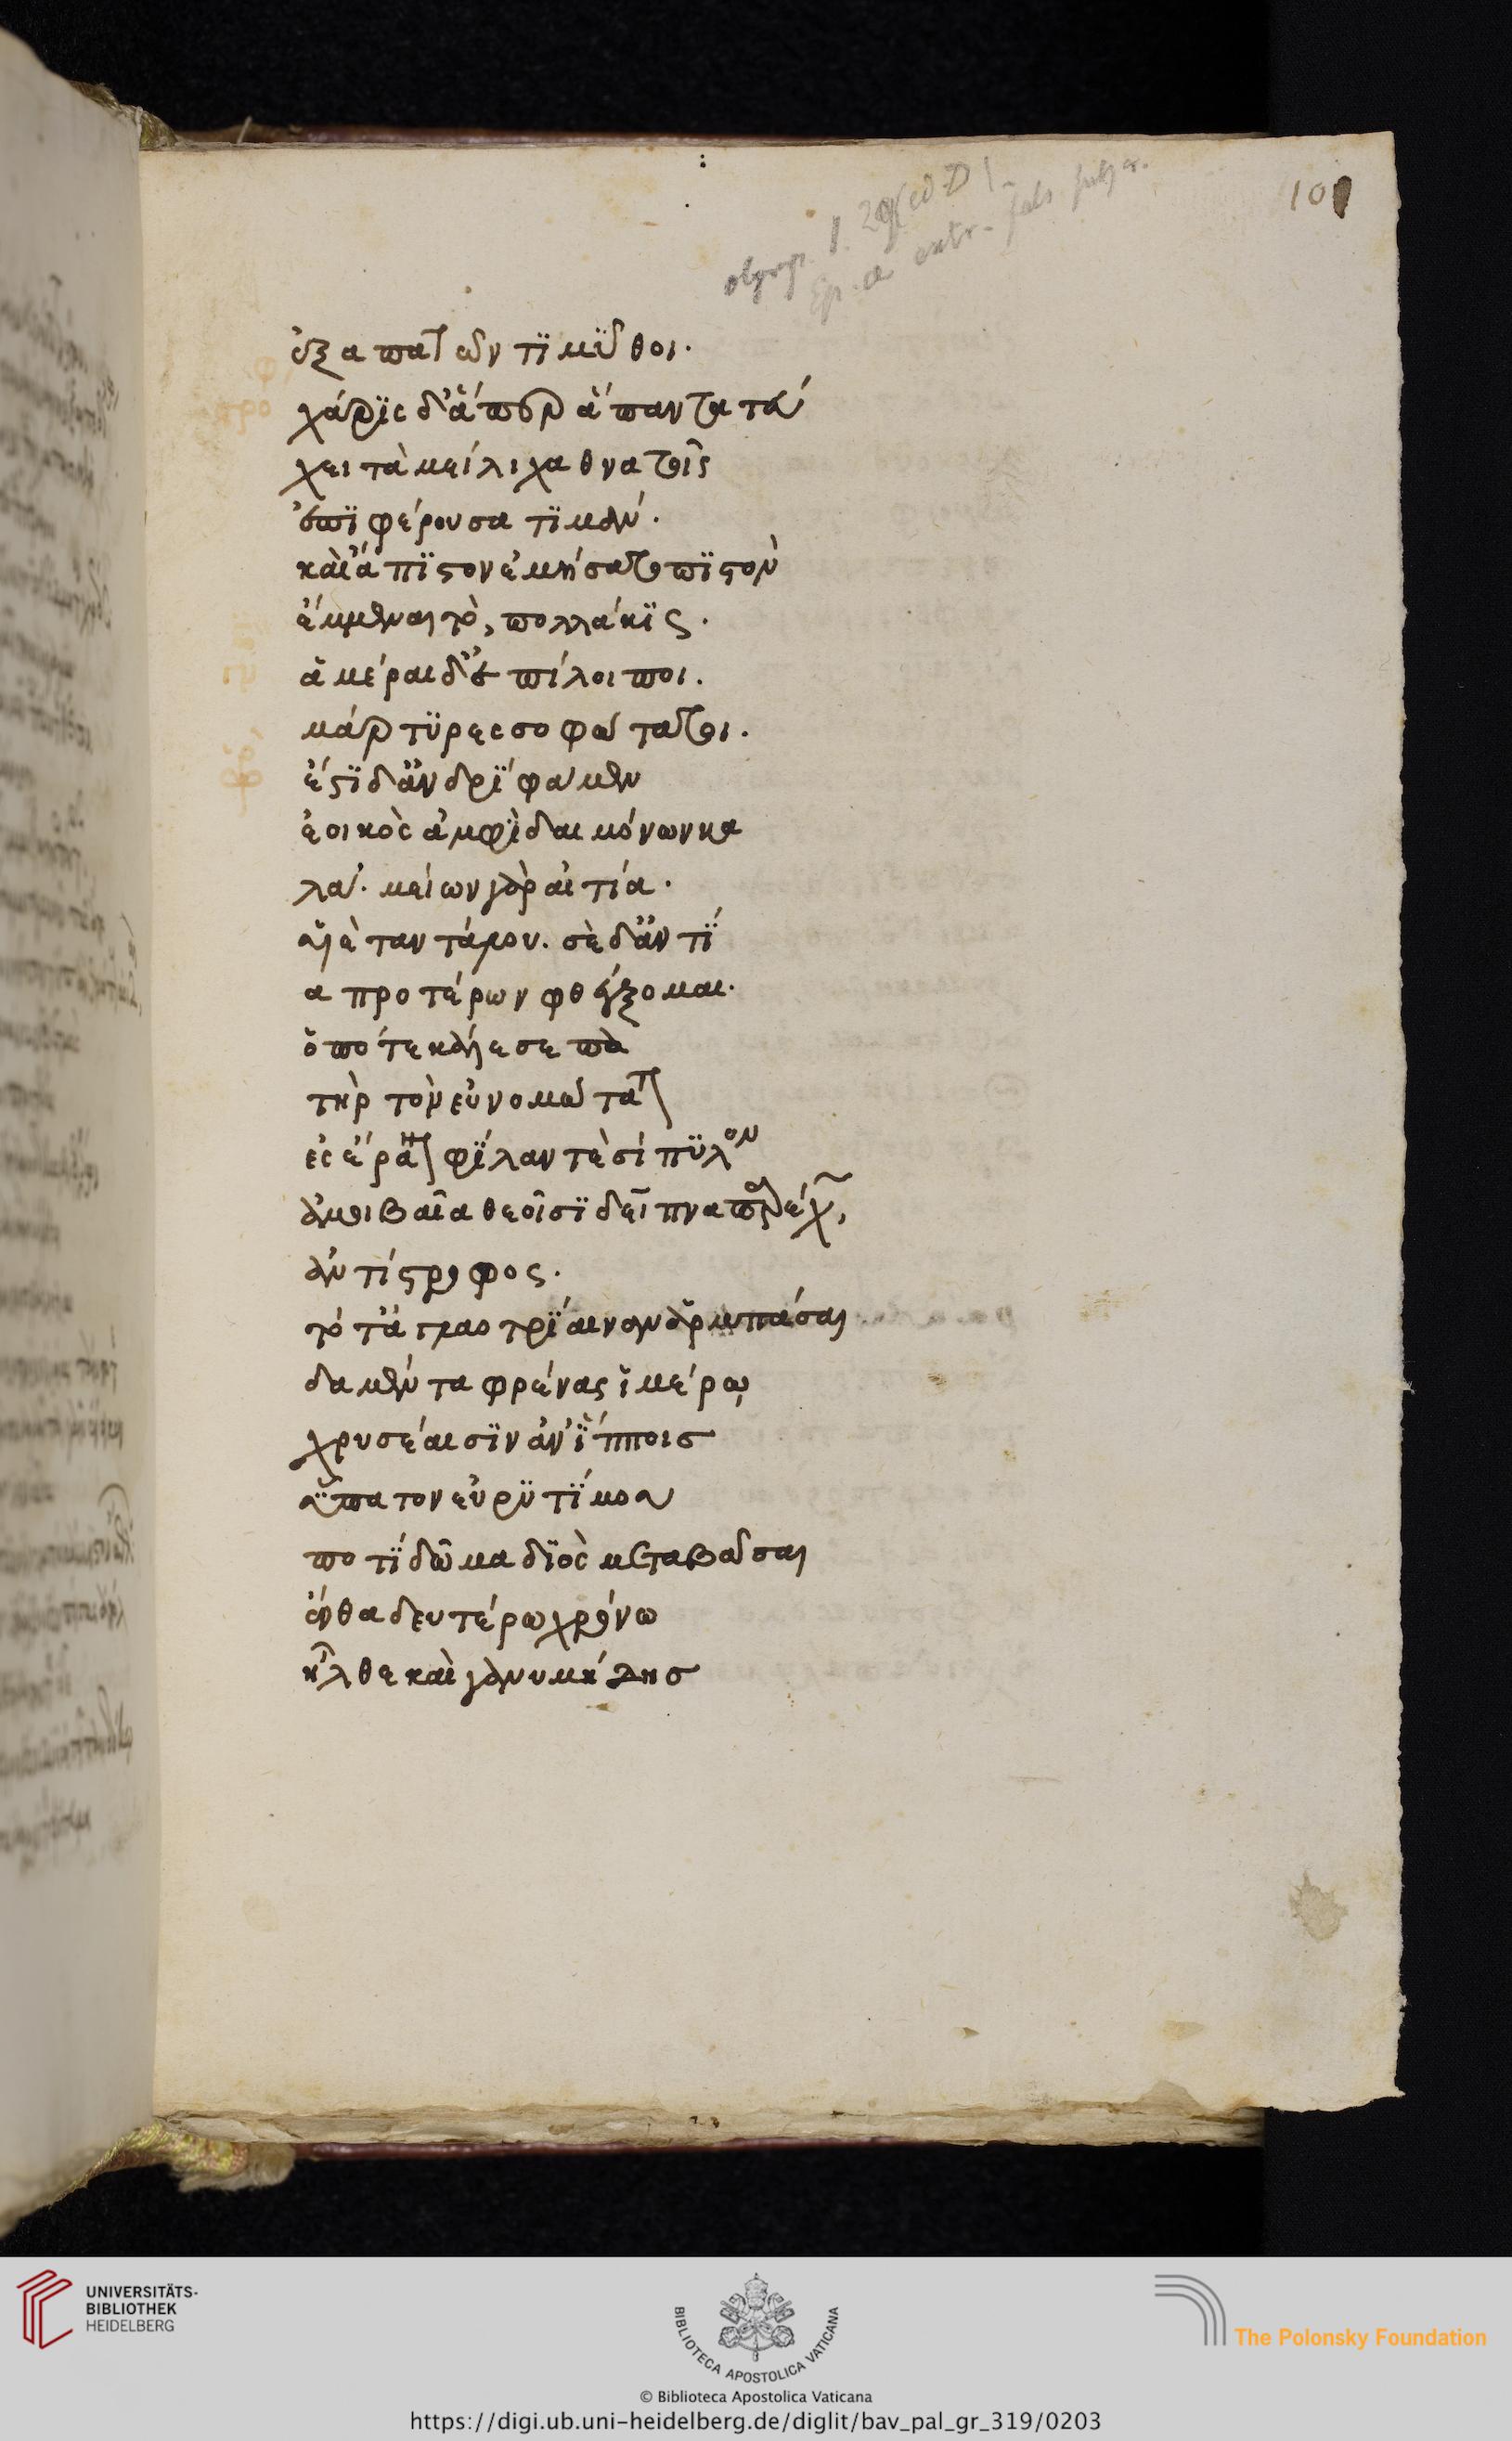 101
olymp. 1. 29
ἐξαπατῶντι μῦθοι.
χάρις δ' ἅπερ ἅπαντα τεύ
χει τὰ μείλιχα θνατοῖς
ἐπιφέρουσα τιμάν.
καὶ ἄπιστον ἐμήσατο πιστὸν
ἔμμεναι τὸ, πολλάκις.
ἁμέραι δ' ἐπίλοιποι.
μάρτυρες σοφώτατοι.
ἔστι δ' ἀνδρὶ φάμεν
ἐοικὸς ἀμφὶ δαιμόνων κα
λά. μείων γὰρ αἰτία.
υἱὲ ταντάλου. σὲ δ' ἀντί
α προτέρων φθέγξομαι.
ὁπότ' ἐκάλεσε πα
τὴρ τὸν εὐνομώτατον
ἐς ἔρανον φίλαν τὲ σίπυλον
ἀμοιβαῖα θεοῖσι δεῖπνα παρέχων,
ἀντίστροφος.
τότ' ἀγλαοτρίαιναν ἁρπάσαι
δαμέντα φρένας ἱμέρῳ
χρυσέαισιν ἀν' ἵπποις
ὕπατον εὐρυτίμου
ποτὶ δῶμα διὸς μεταβᾶσαι
ἔνθα δευτέρω χρόνω
ἦλθε καὶ γανυμήδης
UNIVERSITÄTS-
BIBLIOTHEK
HEIDELBERG
BIBLIOTECA APOSTOLICA VATICANA
The Polonsky Foundation
© Biblioteca Apostolica Vaticana
https://digi.ub.uni-heidelberg.de/diglit/bav_pal_gr_319/0203